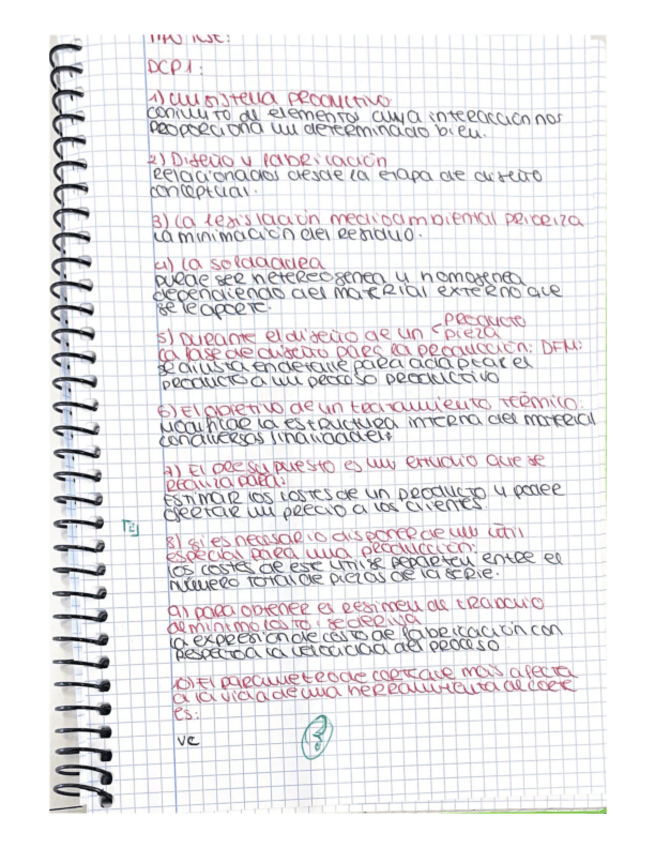 TIPO TEST:
DCP1:
1) Un sistema productivo
conjunto de elementos cuya interacción nos
proporciona un determinado bien.
2) Diseño y fabricación
Relacionados desde la etapa de diseño
conceptual.
3) La legislación medioambiental prioriza
la minimación del residuo.
4) La soldadura
puede ser hetereogenea y homogenea
dependiendo del material externo que
se le aporte.
5) Durante el diseño de un < producto
pieza
la fase de diseño para la producción: DFM:
se ajusta en detalle para adaptar el
producto a un proceso productivo
6) El objetivo de un tratamiento térmico:
Modificar la estructura interna del material
con diversas finalidades
7) El presupuesto es un estudio que se
realiza para:
Estimar los costes de un producto y poder
ofertar un precio a los clientes.
8) Si es necesario disponer de un útil
especial para una producción:
los costes de ese util se reparten entre el
número total de piezas de la serie.
9) para obtener el regimen de trabajo
de minimo costo: se deriva
la expresión de costo de fabricación con
respecto a la velocidad del proceso
10) El parametro de corte que más afecta
a la vida de una herramienta de corte
es:
vc